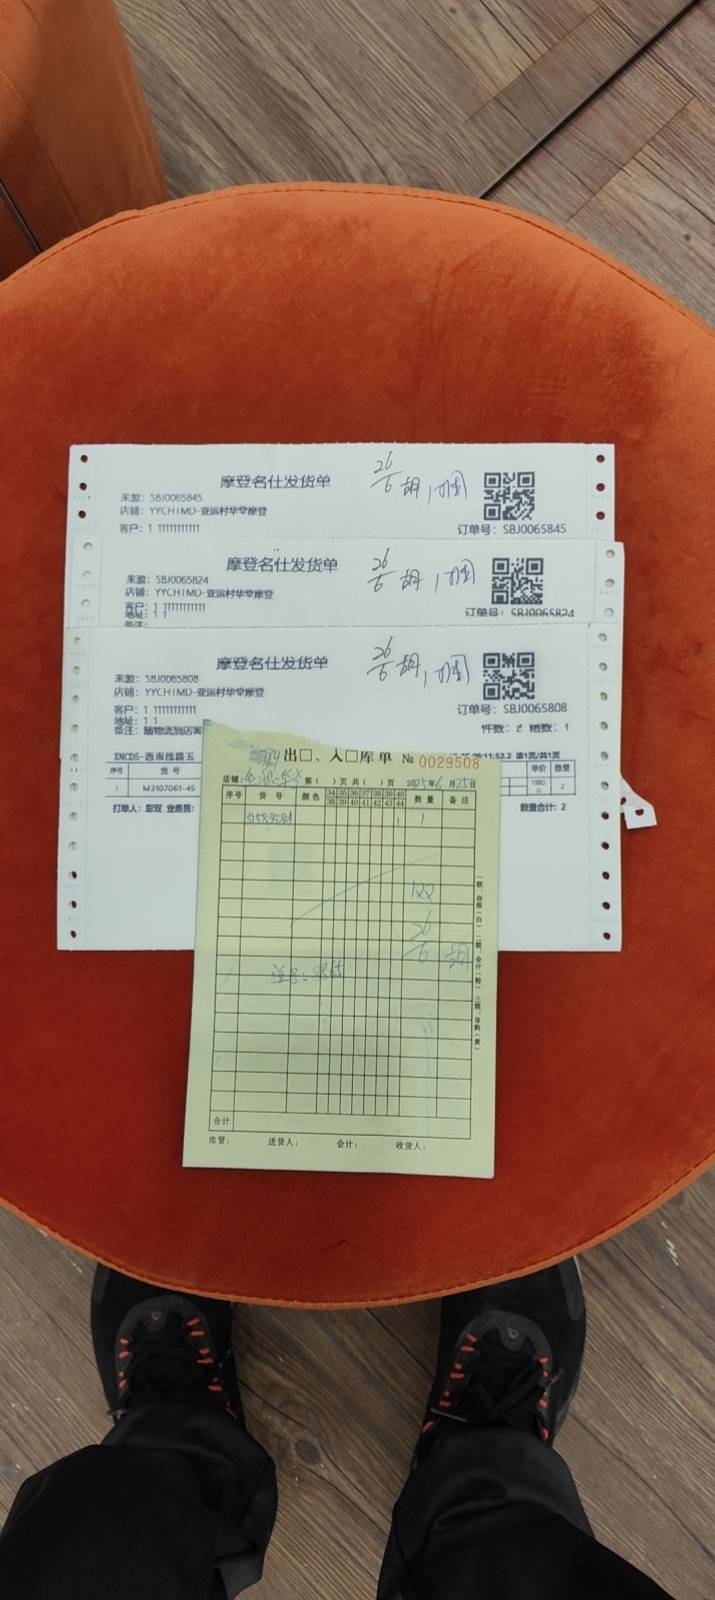 摩登名仕发货单
26/6 胡
来源: SBJ0065845
店铺: YYCHTMD-亚运村华堂摩登
客户: 1 11111111111
订单号: SBJ0065845
摩登名仕发货单
26/6 胡
来源: SBJ0065824
店铺: YYCHTMD-亚运村华堂摩登
客户: 1 11111111111
地址: 1 1
备注:
订单号: SBJ0065824
摩登名仕发货单
26/6 胡
来源: SBJ0065808
店铺: YYCHTMD-亚运村华堂摩登
客户: 1 11111111111
地址: 1 1
备注: 随物流到店
订单号: SBJ0065808
件数: 2 箱数: 1
XNCDS-西南线路五
第1页/共1页
序号 货 号 单价 数量
1 M3107061-45 1980.0 2
打单人: 彭双 业务员:
数量合计: 2
出□、入□库单 № 0029508
店铺: 第( )页共( )页 2025年6月25日
序号 货 号 颜色 34 35 36 37 38 39 40 数量 备注
38 39 40 41 42 43 44
1 1
26/6 胡
一联:存根(白) 二联:会计(粉) 三联:导购(黄)
合计
库管: 送货人: 会计: 收货人: